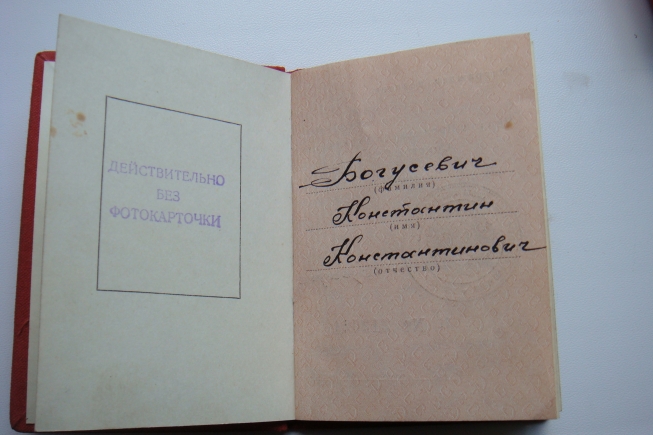 ДЕЙСТВИТЕЛЬНО
БЕЗ
ФОТОКАРТОЧКИ
Богусевич
(фамилия)
Константин
(имя)
Константинович
(отчество)